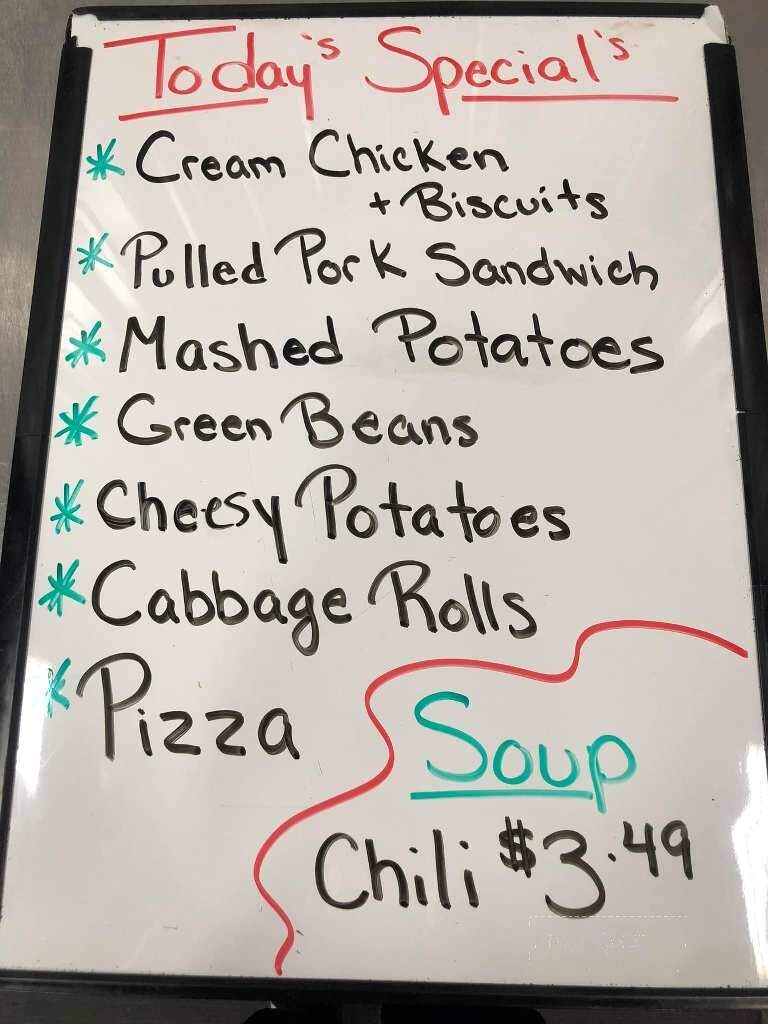 Today's Special's
* Cream Chicken
+ Biscuits
* Pulled Pork Sandwich
* Mashed Potatoes
* Green Beans
* Cheesy Potatoes
* Cabbage Rolls
* Pizza
Soup
Chili $3.49